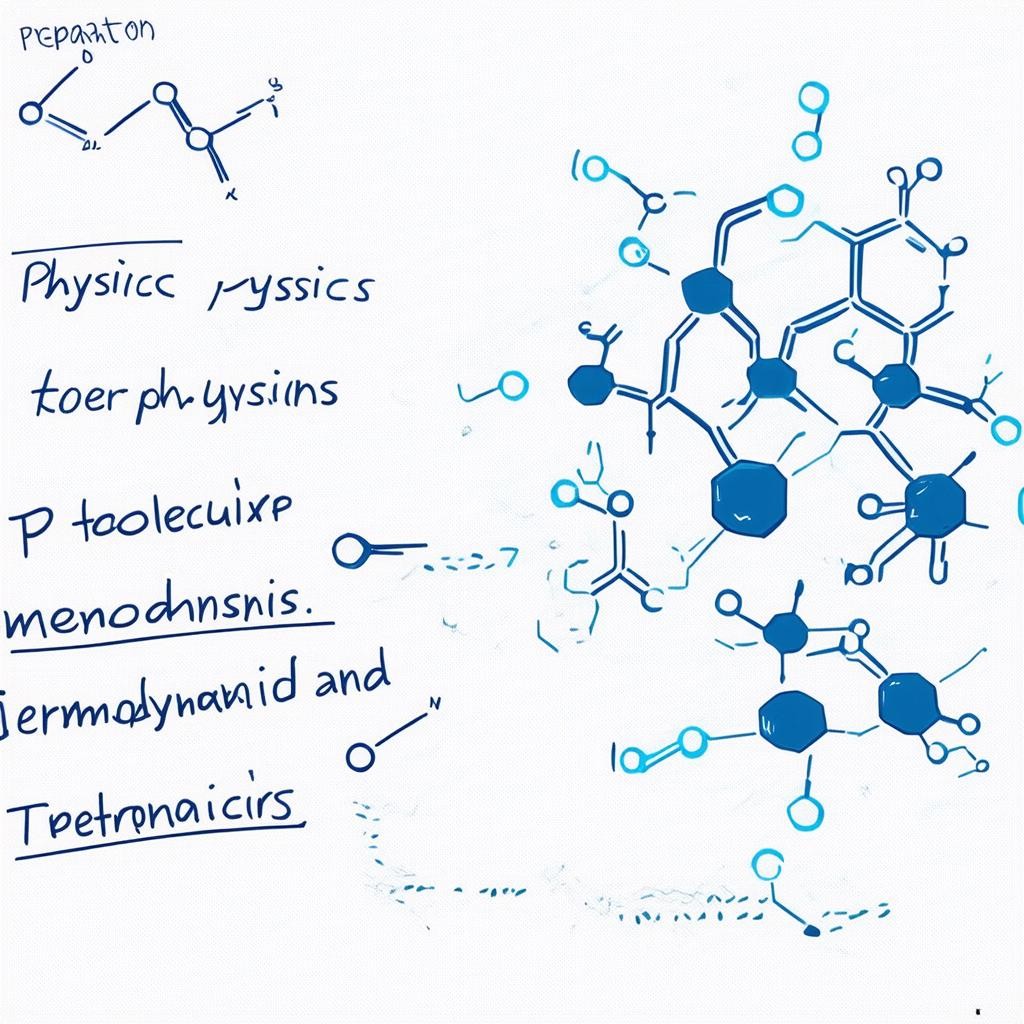 PREPARATON
Physicc pyssics
toer ph.yysiins
P toolecuixe
menodhnsnis.
iermodynanid and
Tpetrpnaicirs